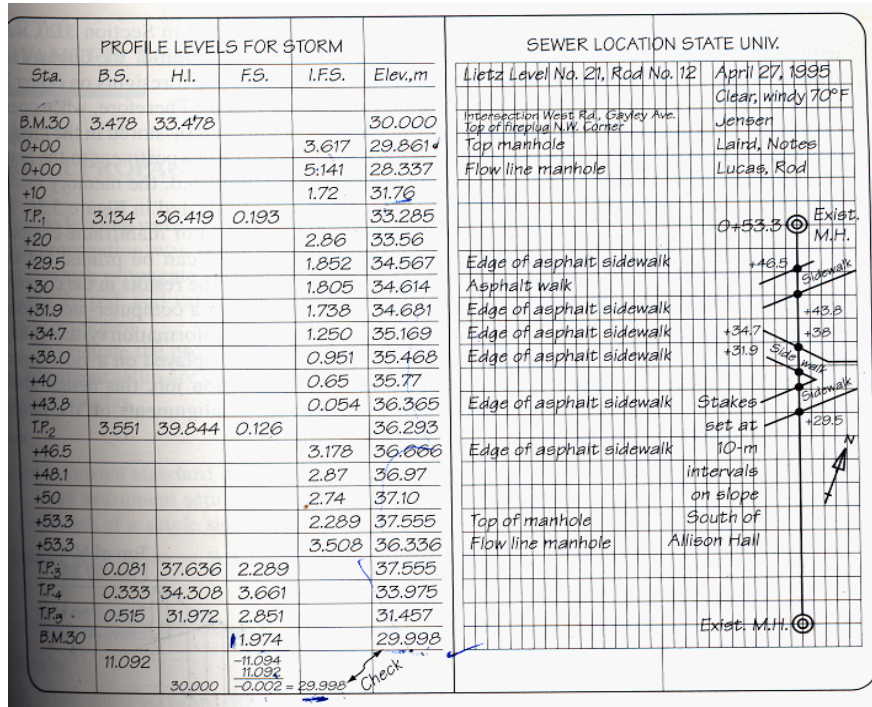 PROFILE LEVELS FOR STORM
Sta. B.S. H.I. F.S. I.F.S. Elev.,m
B.M.30 3.478 33.478 30.000
0+00 3.617 29.861
0+00 5.141 28.337
+10 1.72 31.76
T.P.1 3.134 36.419 0.193 33.285
+20 2.86 33.56
+29.5 1.852 34.567
+30 1.805 34.614
+31.9 1.738 34.681
+34.7 1.250 35.169
+38.0 0.951 35.468
+40 0.65 35.77
+43.8 0.054 36.365
T.P.2 3.551 39.844 0.126 36.293
+46.5 3.178 36.666
+48.1 2.87 36.97
+50 2.74 37.10
+53.3 2.289 37.555
+53.3 3.508 36.336
T.P.3 0.081 37.636 2.289 37.555
T.P.4 0.333 34.308 3.661 33.975
T.P.5 0.515 31.972 2.851 31.457
B.M.30 1.974 29.998
11.092 -11.094
11.092
30.000 -0.002 = 29.998 Check
SEWER LOCATION STATE UNIV.
Lietz Level No. 21, Rod No. 12 April 27, 1995
Clear, windy 70°F
Intersection West Rd., Gayley Ave.
Top of fireplug N.W. Corner Jensen
Top manhole Laird, Notes
Flow line manhole Lucas, Rod
0+53.3 Exist.
M.H.
Edge of asphalt sidewalk +46.5 Sidewalk
Asphalt walk
Edge of asphalt sidewalk +43.8
Edge of asphalt sidewalk +34.7 +38
Edge of asphalt sidewalk +31.9 Side walk
Sidewalk
Edge of asphalt sidewalk Stakes
set at +29.5
Edge of asphalt sidewalk 10-m N
intervals
on slope
Top of manhole South of
Flow line manhole Allison Hall
Exist. M.H.